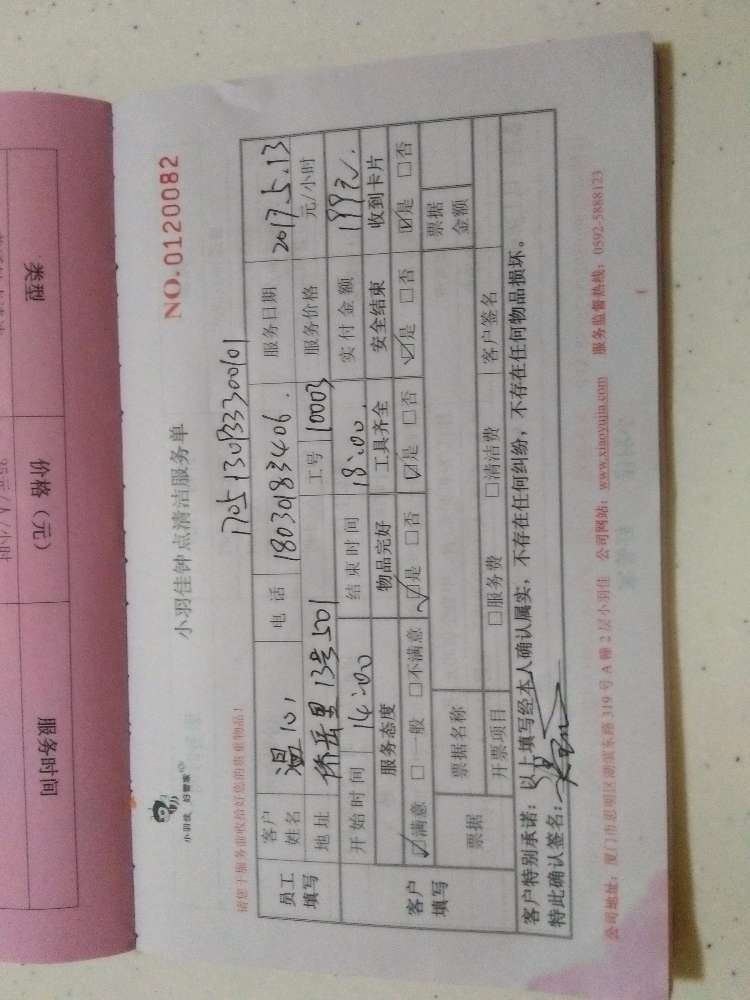 类型
价格（元）
服务时间
小羽佳 好管家
小羽佳钟点清洁服务单
NO.0120082
请您于服务前收拾好您的贵重物品！
员工填写
客户姓名 温 电话 18030183406. 服务日期 2017.5.13
地址 侨岳里13号501 工号 10003 服务价格 元/小时
客户填写
开始时间 14:00 结束时间 18:00. 实付金额 199元.
服务态度 物品完好 工具齐全 安全结束 收到卡片
☑满意 □一般 □不满意 ☑是 □否 ☑是 □否 ☑是 □否 ☑是 □否
票据 票据名称 票据金额
开票项目 □服务费 □清洁费 客户签名
客户特别承诺：以上填写经本人确认属实，不存在任何纠纷，不存在任何物品损坏。
特此确认签名：
公司地址：厦门市思明区湖滨东路319号A幢2层小羽佳 公司网站：www.xiaoyujia.com 服务监督热线：0592-5888123